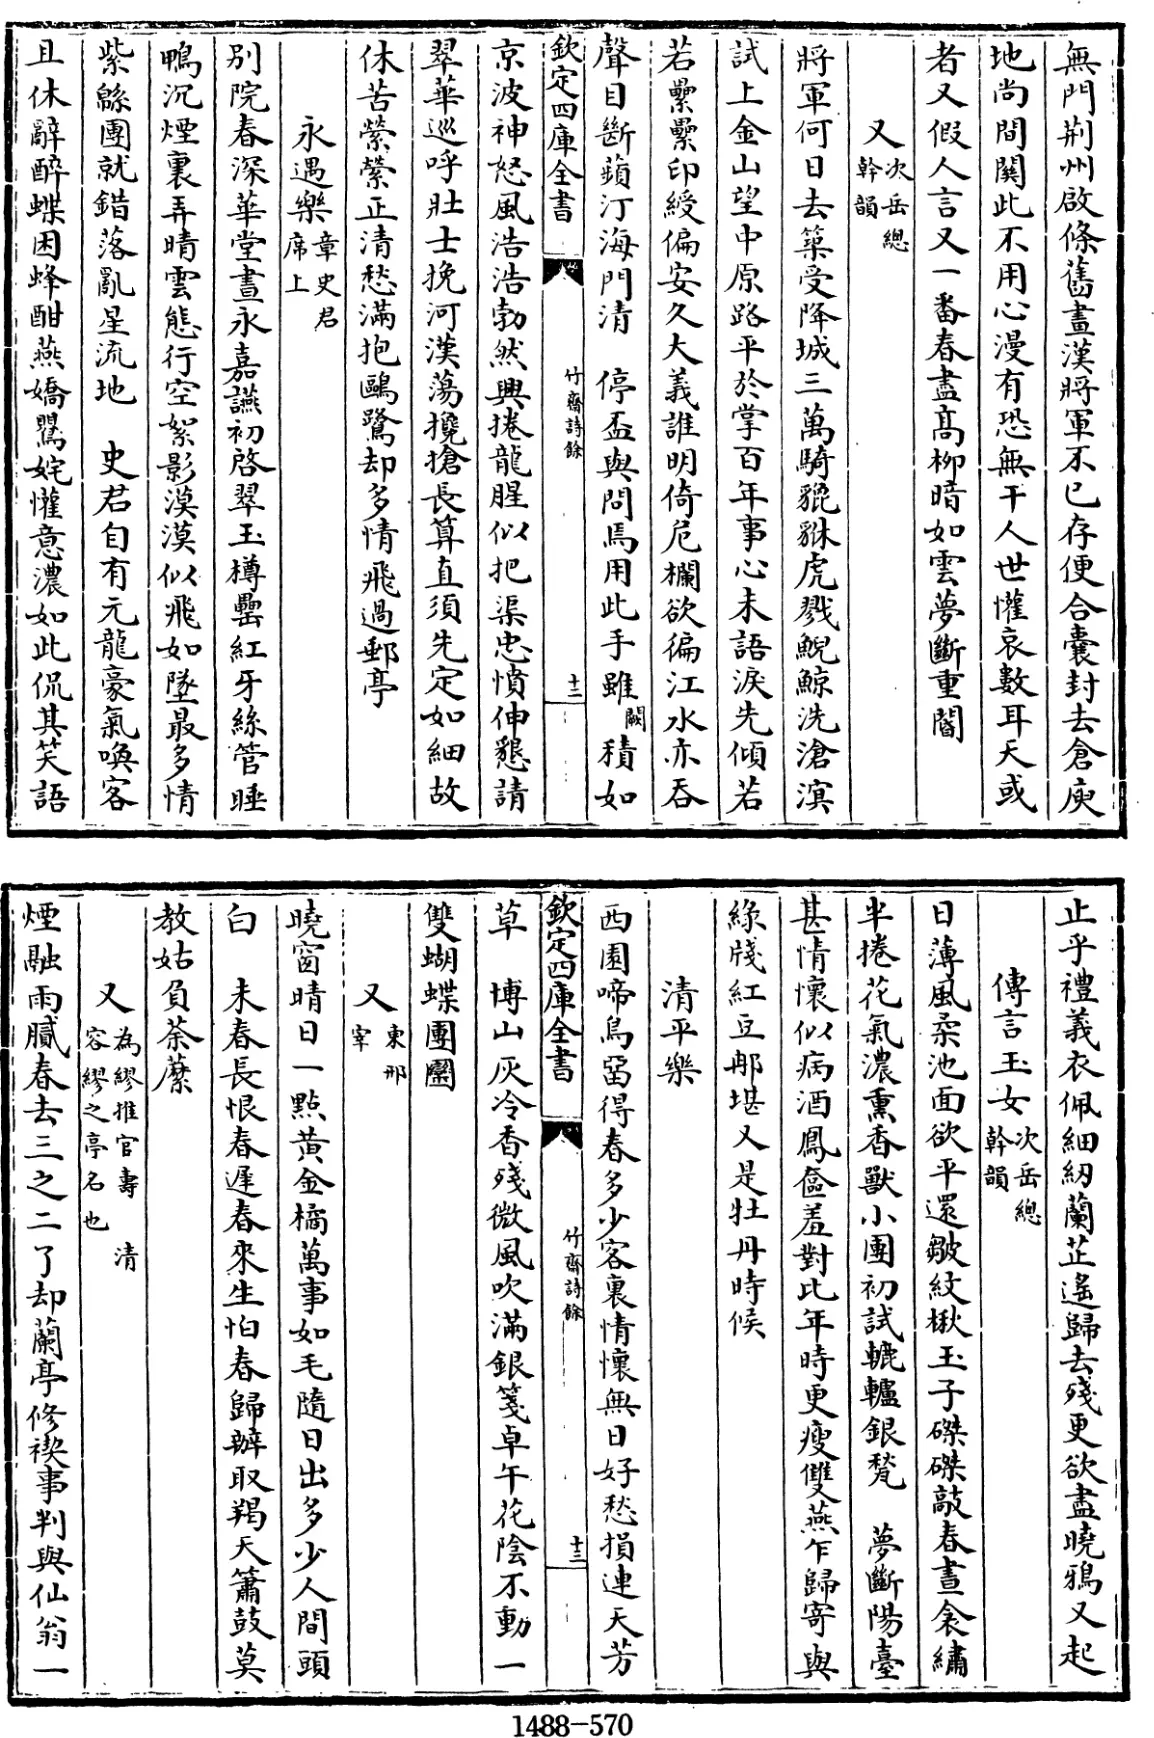 無門荆州啟條舊畫漢將軍不已存便合囊封去倉庾
地尚間關此不用心漫有恐無干人世懽哀數耳天或
者又假人言又一番春盡髙柳暗如雲夢斷重閽
又次岳總幹韻
將軍何日去築受降城三萬騎貔貅虎戮鯢鯨洗滄溟
試上金山望中原路平於掌百年事心未語淚先傾若
若纍纍印綬偏安久大義誰明倚危欄欲徧江水亦吞
聲目斷蘋汀海門清　停盃與問焉用此手雖闕積如
欽定四庫全書　竹齋詩餘　十二
京波神怒風浩浩勃然興捲龍腥似把渠忠憤伸懇請
翠華巡呼壯士挽河漢蕩攙搶長算直須先定如細故
休苦縈縈正清愁滿抱鷗鷺却多情飛過郵亭
永遇樂章史君席上
別院春深華堂晝永嘉讌初啓翠玉樽罍紅牙絲管睡
鴨沉煙裏弄晴雲態行空絮影漠漠似飛如墜最多情
紫緜團就錯落亂星流地　史君自有元龍豪氣喚客
且休辭醉蝶困蜂酣燕嬌鶯姹懽意濃如此侃其笑語
止乎禮義衣佩細紉蘭芷遙歸去殘更欲盡曉鴉又起
傳言玉女次岳總幹韻
日薄風柔池面欲平還皺紋楸玉子磔磔敲春晝衾繡
半捲花氣濃熏香獸小團初試轆轤銀甃　夢斷陽臺
甚情懷似病酒鳳奩羞對比年時更瘦雙燕乍歸寄與
綠牋紅豆那堪又是牡丹時候
清平樂
西園啼鳥留得春多少客裏情懷無日好愁損連天芳
欽定四庫全書　竹齋詩餘　十三
草　博山灰冷香殘微風吹滿銀箋卓午花陰不動一
雙蝴蝶團圞
又東邢宰
曉窗晴日一點黃金橘萬事如毛隨日出多少人間頭
白　未春長恨春遲春來生怕春歸辦取羯天簫鼓莫
教姑負荼䕷
又為繆推官壽清容繆之亭名也
煙融雨膩春去三之二了却蘭亭修禊事判與仙翁一
1488-570